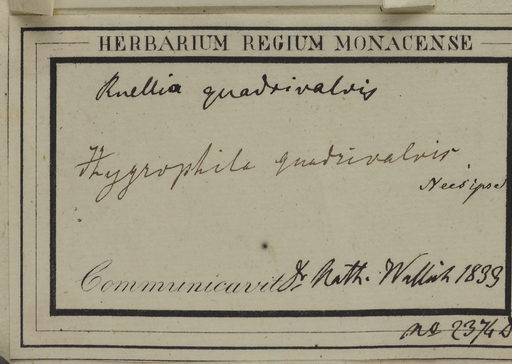 HERBARIUM REGIUM MONACENSE
Ruellia quadrivalvis
Hygrophila quadrivalvis
Nees ipse
Communicavit Dr. Nath. Wallich 1833
No 2374 D